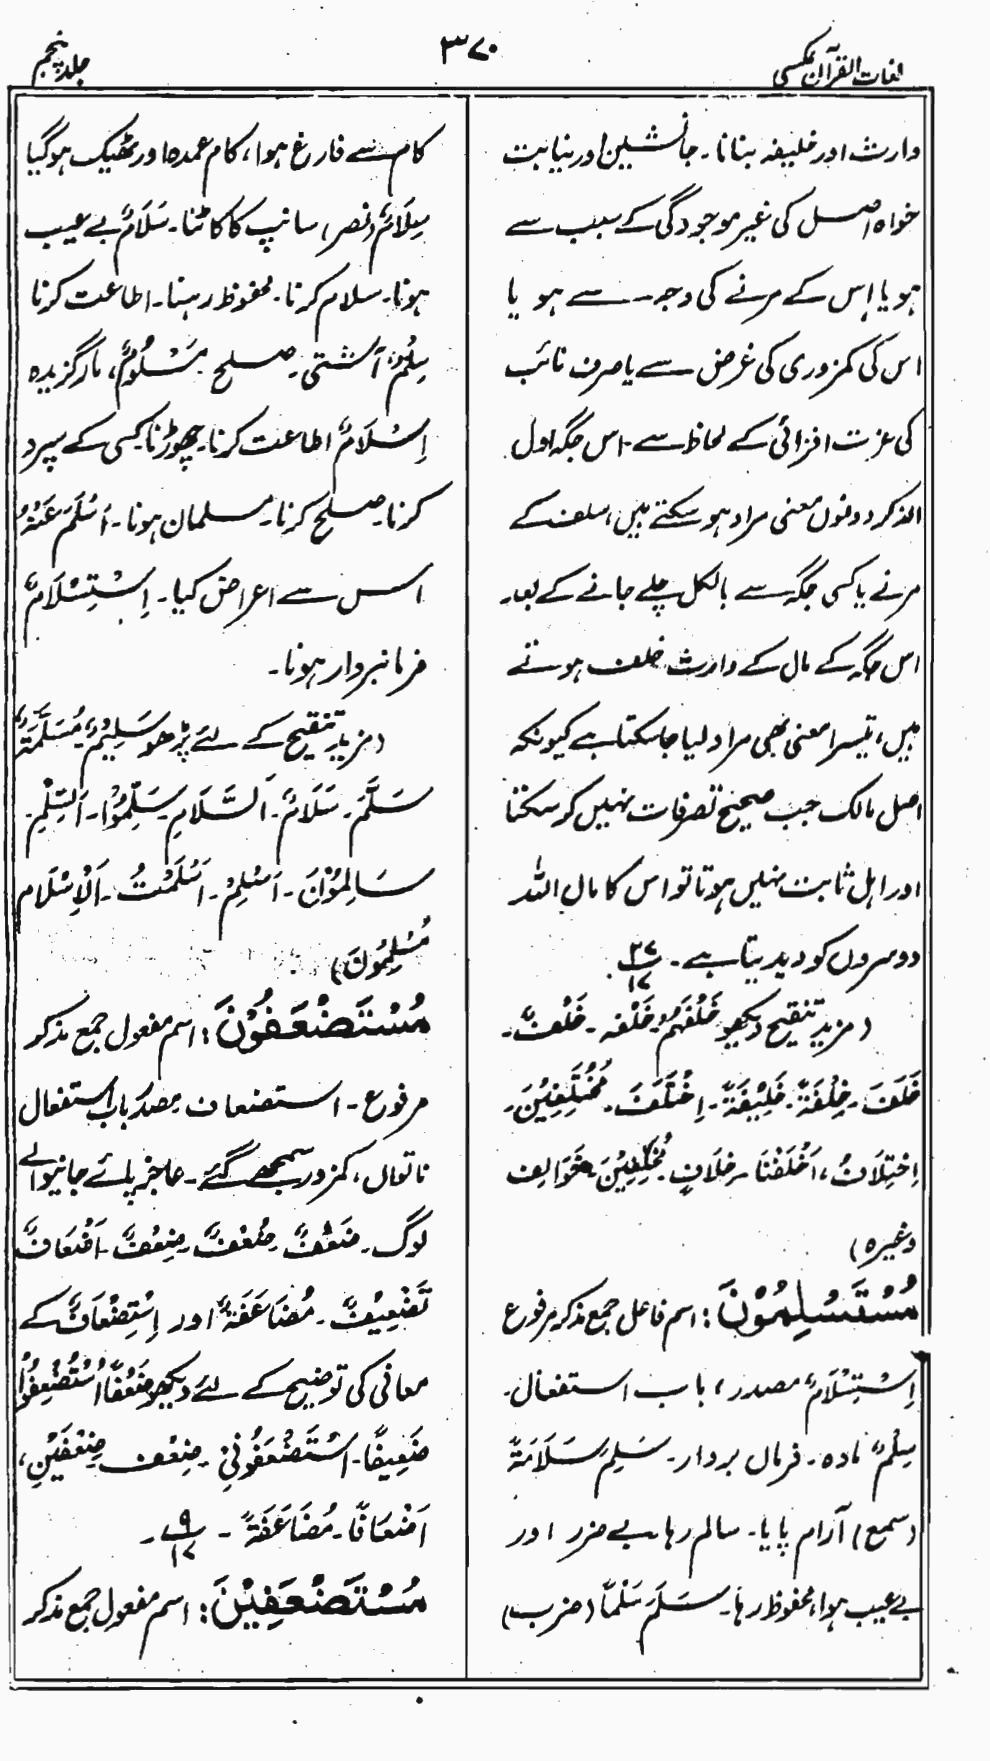 لغات القرآن عکسی
۳۷۰
جلد پنجم
وارث اور خلیفہ بنانا۔ جانشین اور نیابت
خواہ اصل کی غیر موجودگی کے سبب سے
ہو یا اِس کے مرنے کی وجہ سے ہو یا
اس کی کمزوری کی غرض سے یا صرف نائب
کی عزت افزائی کے لحاظ سے۔ اس جگہ اول
الذکر دونوں معنی مراد ہو سکتے ہیں، سلف کے
مرنے یا کسی جگہ سے بالکل چلے جانے کے بعد۔
اس جگہ کے مال کے وارث خلف ہوتے
ہیں، تیسرا معنی بھی مراد لیا جا سکتا ہے کیونکہ
اصل مالک جب صحیح تصرفات نہیں کر سکتا
اور اہل ثابت نہیں ہوتا تو اس کا مال اللہ
دوسروں کو دیدیتا ہے۔ ۲۷/۱۷
(مزید تنقیح دیکھو خَلْفَهُمْ۔ خَلْفَه۔ خَلْفٌ۔
خَلَفَ۔ خِلْفَةٌ۔ خَلِیْفَةٌ۔ اِخْتَلَفَ۔ مُخْتَلِفِیْنَ۔
اِخْتِلَافُ، اَخْلَفْنَا۔ خِلَافٍ۔ مُخَلَّفِیْنَ۔ خَوَالِف
وغیرہ)
مُسْتَسْلِمُوْنَ: اسم فاعل جمع مذکر مرفوع
اِسْتِسْلَامٌ، مصدر، باب استفعال۔
سِلْمٌ مادہ۔ فرماں بردار۔ سَلِمَ سَلَامَةً
(سمع) آرام پایا۔ سالم رہا۔ بے ضرر اور
بے عیب ہوا، محفوظ رہا۔ سَلَمَ سَلْماً (ضرب)
کام سے فارغ ہوا، کام عمدہ اور ٹھیک ہو گیا
سِلَامٌ (نصر) سانپ کا کاٹنا۔ سَلَامٌ بے عیب
ہونا۔ سلام کرنا۔ محفوظ رہنا۔ اطاعت کرنا
سِلْمٌ آشتی۔ صلح۔ مَسْلُوْمٌ، مارگزیدہ
اِسْلَامٌ اطاعت کرنا۔ چھوڑنا کسی کے سپرد
کرنا۔ صلح کرنا۔ مسلمان ہونا۔ اَسْلَمَ عَنْهُ
اس سے اعراض کیا۔ اِسْتِسْلَامٌ
فرمانبردار ہونا۔
(مزید تنقیح کے لئے پڑھو سَلِیْمٌ، مُسَلَّمَةٌ
سَلَّمَ۔ سَلَامٌ۔ اَلسَّلَامِ۔ سَلِّمُوْا۔ اَلسِّلْمِ۔
سَالِمُوْنَ۔ اَسْلِمْ۔ اَسْلَمْتُ۔ اَلْاِسْلَام
مُسْلِمُوْنَ)
مُسْتَضْعَفُوْنَ: اسم مفعول جمع مذکر
مرفوع۔ استضعاف مصدر باب استفعال
ناتواں، کمزور سمجھے گئے۔ عاجز پائے جانیوالے
لوگ۔ ضَعْفٌ۔ ضُعْفٌ۔ ضِعْفٌ۔ اَضْعَافٌ
تَضْعِیْفٌ۔ مُضَاعَفَةٌ اور اِسْتِضْعَافٌ کے
معانی کی توضیح کے لئے دیکھو ضَعْفًا اُسْتُضْعِفُوْا
ضَعِیْفًا۔ اسْتَضْعَفُوْنِیْ۔ ضِعْف۔ ضِعْفَیْنِ،
اَضْعَافًا۔ مُضَاعَفَةٌ۔ ۹/۱۷۔
مُسْتَضْعَفِیْنَ: اسم مفعول جمع مذکر